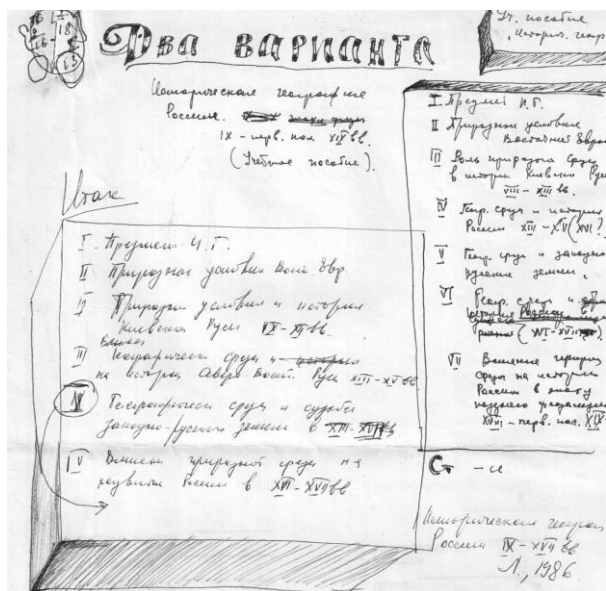 Два варианта
Уч. пособие
Историч. геогр
Историческая география
России.
IX – перв. пол. XIX вв.
(Учебное пособие).
Итак
I. Предмет И.Г.
II Природные условия Вост Евр
Природные условия и история
Киевской Руси IX – XII вв.
III Влияние
Географической среды и истории
на историю Северо-Вост. Руси XIII – XV вв
IV Географическая среда и судьбы
западно-русских земель в XIII – XVII вв
V Влияние природной среды на
развитие России в XVI – XVII вв
I. Предмет И.Г.
II Природные условия
Восточной Евро
III Роль природной среды
в истории Киевской Руси
VIII – XIII вв.
IV Геогр. среда и история
России XIII – XV (XVI?)
V Геогр среда и западно
русские земли.
VI Геогр. среда и
(XVI – XVII
VII Влияние природн
среды на историю
России в эпоху
позднего феодализма
XVIII – перв. пол. XIX
Ст – и
Историческая географ
России IX – XVII вв
Л., 1986